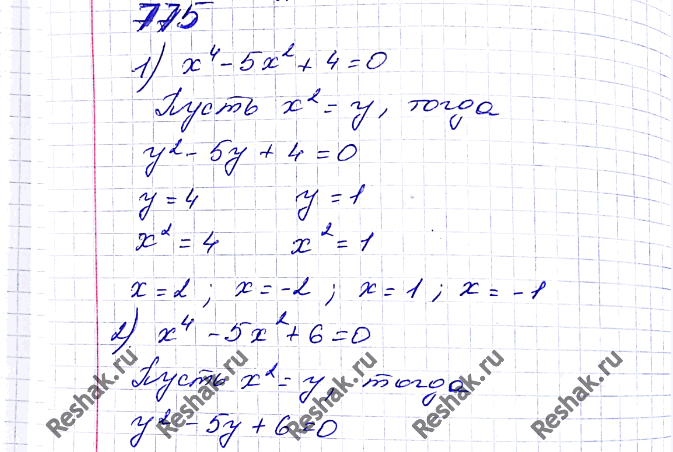 775
1) x⁴ - 5x² + 4 = 0
Пусть x² = y, тогда
y² - 5y + 4 = 0
y = 4 y = 1
x² = 4 x² = 1
x = 2 ; x = -2 ; x = 1 ; x = -1
2) x⁴ - 5x² + 6 = 0
Пусть x² = y, тогда
y² - 5y + 6 = 0
Reshak.ru Reshak.ru Reshak.ru Reshak.ru Reshak.ru